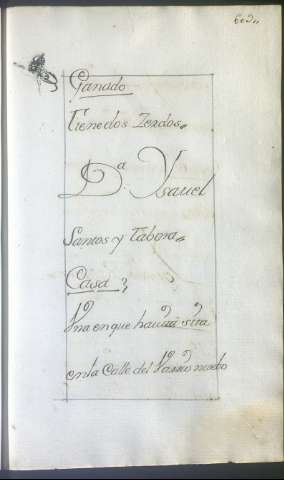 603,,
Ganado
Tiene dos Zerdos,,
D.ª Ysauel
Santos y Tabora,,
Casa
Vna en que hauita sita
en la Calle del Varrio nuebo